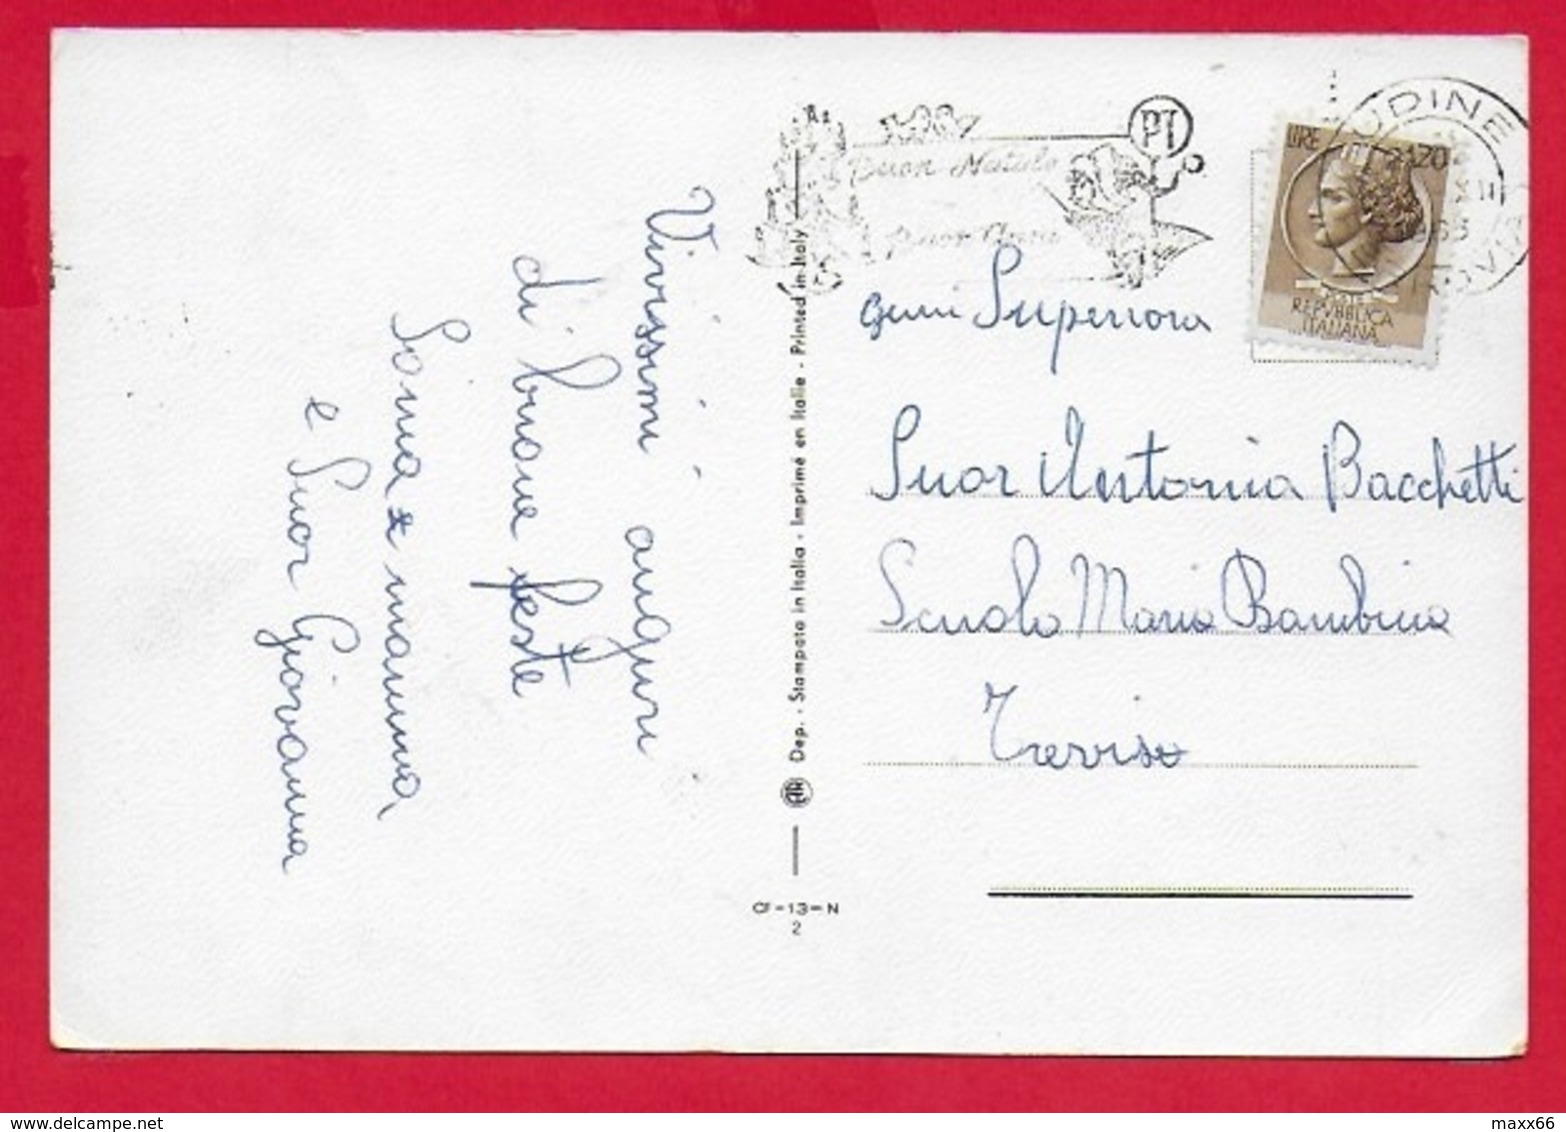 Vivissimi auguri
di buone feste
Sonia e mamma
e Suor Giovanna
Dep. - Stampato in Italia - Imprimé en Italie - Printed in Italy
CF-13-N
2
PT
Buon Natale
Buon Anno
UDINE
LIRE 20
POSTE
REPVBBLICA
ITALIANA
Superiora
Suor Antonia Bacchetti
Scuola Maria Bambina
Treviso
maxx66